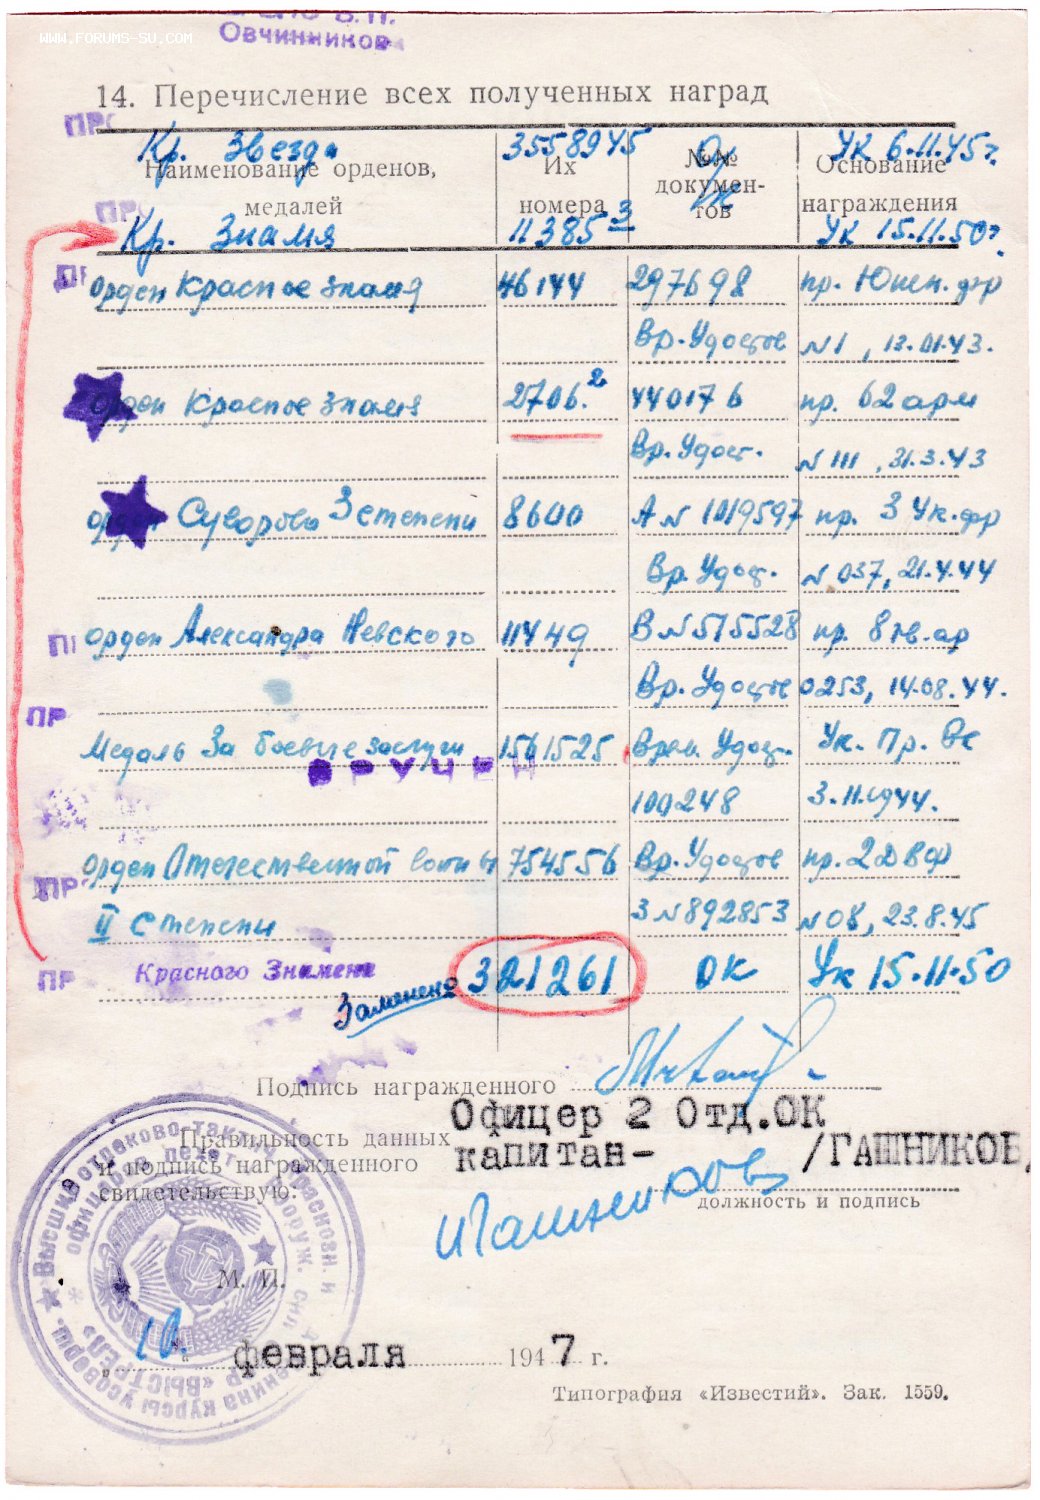 WWW.FORUMS-SU.COM
Овчинников
14. Перечисление всех полученных наград
ПР
Кр. Звезда 3558945 Ук 6.11.45г.
Наименование орденов, медалей Их номера №№ документов Основание награждения
ПР
Кр. Знамя 11385 3 ОК Ук 15.11.50г.
Орден Красное Знамя 46144 297698 пр. Южн. фр
Вр. Удостов №1, 13.01.43.
Орден Красное Знамя 2706.2 440176 пр. 62 арм
Вр. Удост. №111, 31.3.43
Орден Суворова 3 степени 8600 А№1019597 пр. 3 Ук. фр
Вр. Удос. №037, 21.4.44
ПР
Орден Александра Невского 11449 В№515528 пр. 8 гв. ар
Вр. Удостов 0253, 14.08.44.
ПР
Медаль За боевые заслуги 1561525 Врем. Удос. Ук. Пр. Вс
ВРУЧЕН
100248 3.11.1944.
Орден Отечественной войны 754556 Вр. Удостов пр. 2ДВФ
ПР
II степени З№892853 №08, 23.8.45
ПР
Красного Знамени 321261 ОК Ук 15.11.50
Заменено
Подпись награжденного
Офицер 2 Отд.ОК
Правильность данных
и подпись награжденного капитан- /ГАШНИКОВ/
свидетельствую:
Гашников
должность и подпись
Высшие стрелково-тактич. Краснозн. и
офицеров пехот.
Ленина курсы усоверш.
«ВЫСТРЕЛ»
М. П.
10 февраля 1947 г.
Типография «Известий». Зак. 1559.